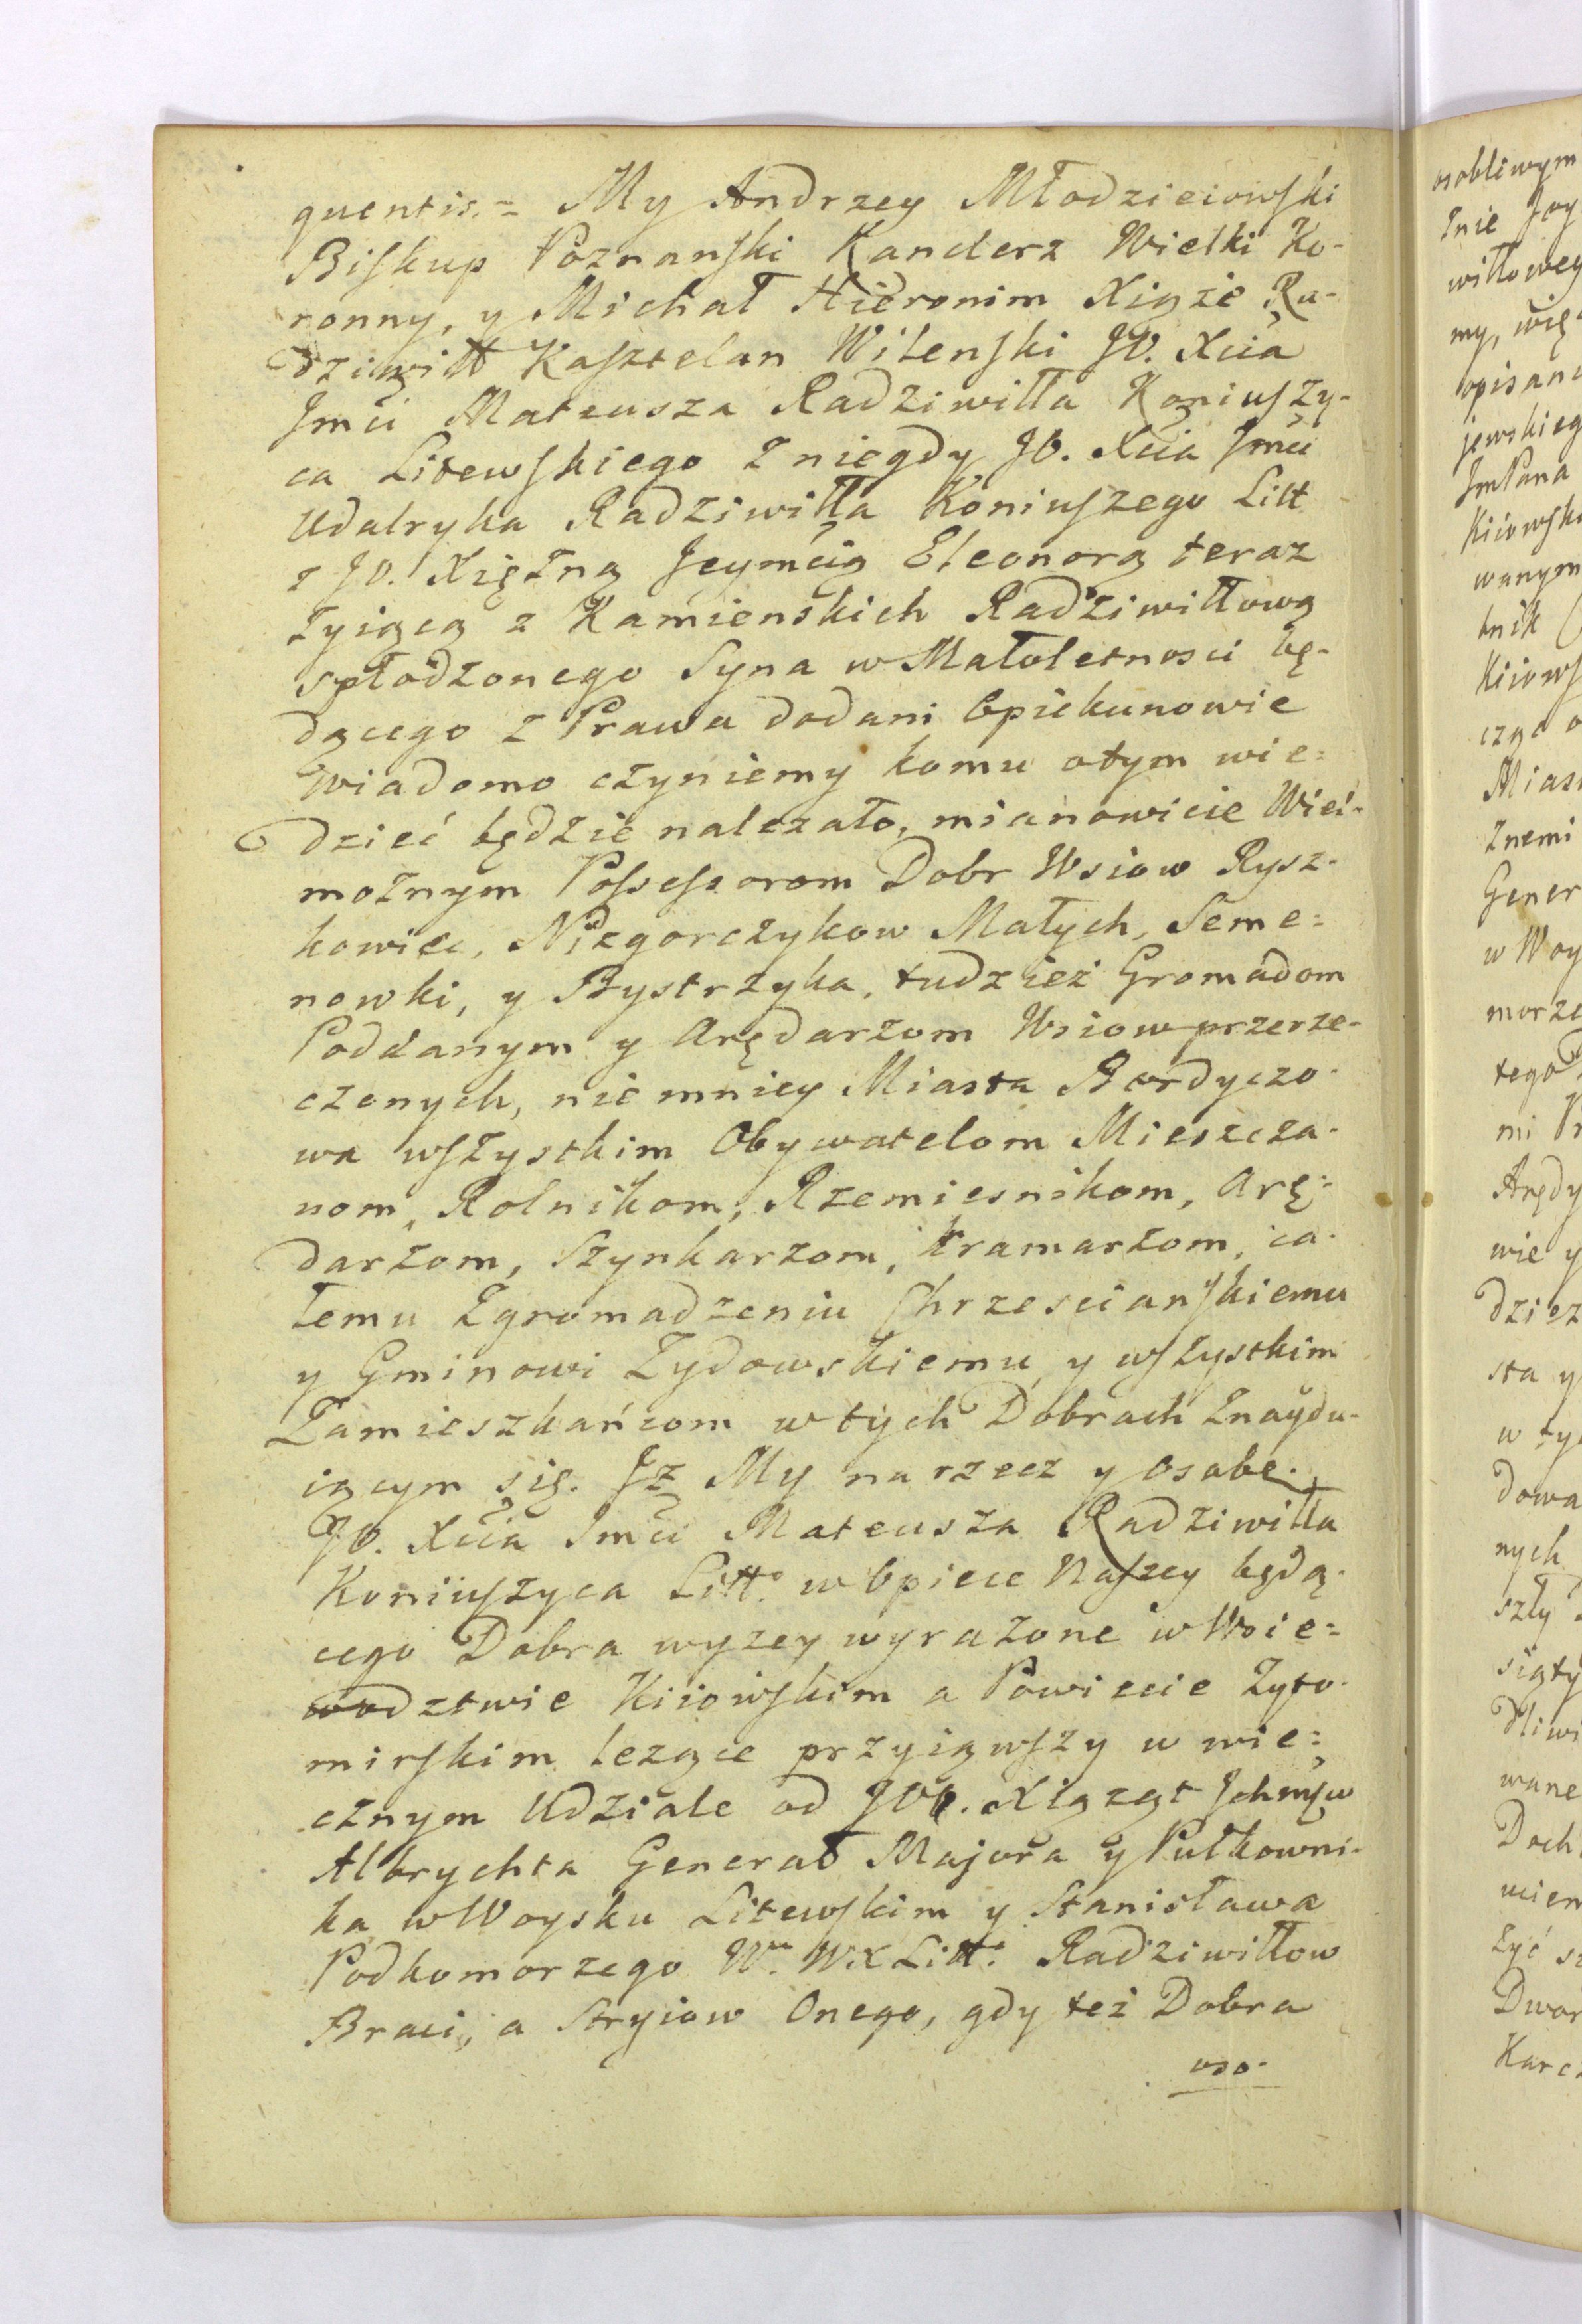 quentis.= My Andrzey Młodzieiowski
Biskup Poznanski Kanclerz Wielki Ko-
ronny, y Michał Hieronim Xiąże Ra-
dziwiłł Kasztelan Wilenski JO. Xcia
Jmci Mateusza Radziwiłła Koniuszy-
ca Litewskiego z niegdy JO. Xcia Jmci
Udalryka Radziwiłła Koniuszego Litt
z JO. Xiężną Jeymcią Eleonorą teraz
żyiącą z Kamienskich Radziwiłłową
spłodzonego Syna w Małoletnosci bę-
dącego z Prawa dodani Opiekunowie
Wiadomo czyniemy komu otym wie=
dzieć będzie nalezało, mianowicie Wiel-
możnym Possessorom Dobr Wsiow Rysz-
kowiec, Nizgorczykow Małych, Seme=
nowki, y Bystrzyka, tudzież Gromadom
Poddanym y Arędarzom Wsiow przerze-
czonych, nie mniey Miasta Berdyczo-
wa wszystkim Obywatelom Mieszcza-
nom, Rolnikom, Rzemiesnikom, Arę=
darzom, Szynkarzom, Kramarzom, ca-
łemu Zgromadzeniu Chrzescianskiemu
y Gminowi Żydowskiemu y wszystkim
Zamieszkańcom w tych Dobrach Znaydu-
iącym się. Jż My na rzecz y Osobę
JO. Xcia Jmci Mateusza Radziwiłła
Koniuszyca Litt. w Opiece Naszey będą-
cego Dobra wyzey wyrazone w Woie=
wodztwie Kiiowskim a Powiecie Zyto-
mirskim lezące przyiąwszy w wie=
cznym Udziale od JOO. Xiążąt Jchmciw
Albrychta Generał Majora y Pułkowni-
ka w Woysku Litewskim y Stanisława
Podkomorzego Wo. WX Litt. Radziwiłłow
Braci, a Stryiow Onego, gdy też Dobra
oso-
osobliwym
witłowey
my, wię
opisan
jewskieg
JmPana
Kiiowsk
wanym
Kiiows
Mias
Znemi
Gener
w Woy
morze
tego
mi Pr
Arędy
wie y
dziez
sta y
w ty
dowa
nych
szły
wane
Doch
Żyć
Dwor
Karc